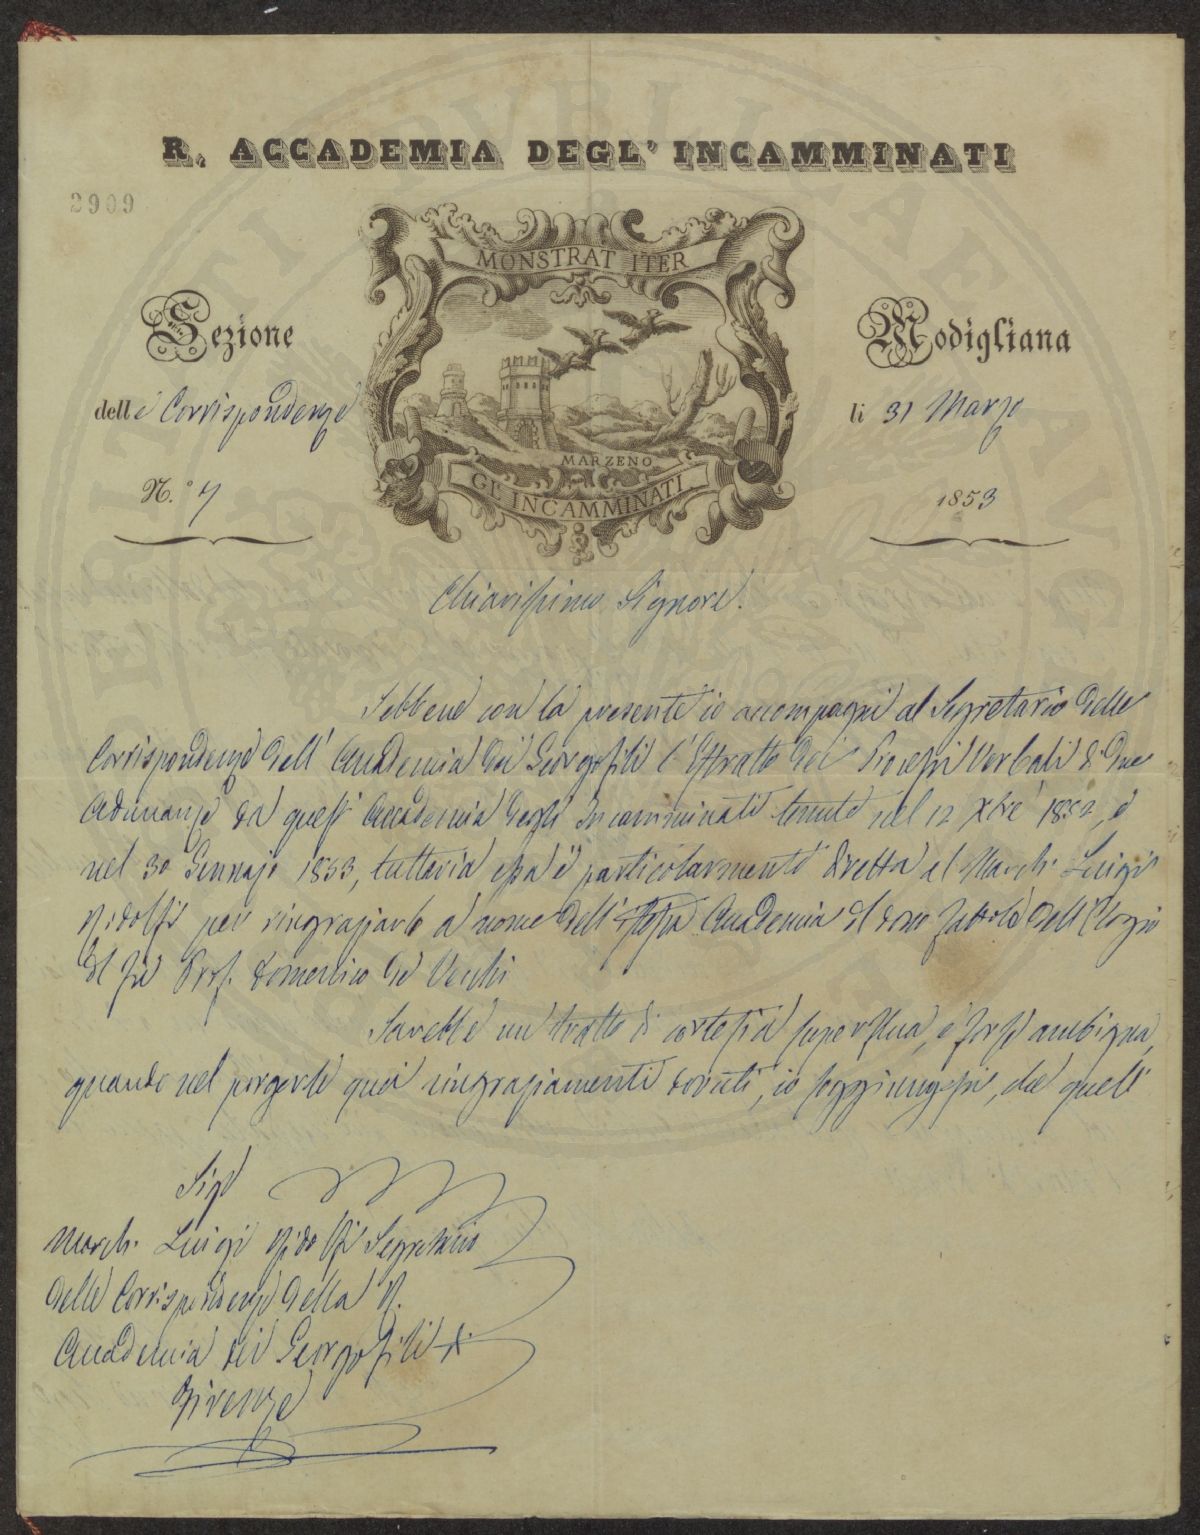 R. ACCADEMIA DEGL' INCAMMINATI
2909
MONSTRAT ITER
Sezione
delle Corrispondenze
N.° 7
MARZENO
GE INCAMMINATI
Modigliana
li 31 Marzo
1853
Chiarissimo Signore.
Sebbene con la presente io accompagni al Segretario delle
Corrispondenze dell' Accademia dei Georgofili l'Estratto dei Processi Verbali di due
Adunanze da quest' Accademia degli Incamminati tenute nel 12 Xbre 1852, e
nel 30 Gennajo 1853, tuttavia essa è particolarmente diretta al March. Luigi
Ridolfi per ringraziarlo a nome dell' stessa Accademia del dono fattole dell'Elogio
del fu Prof. Domenico De Vecchi
Sarebbe un tratto di cortesia superflua, e forse ambigua,
quando nel porgerle quei ringraziamenti dovuti, io soggiungessi, che quell'
Sigr
March. Luigi Ridolfi Segretario
delle Corrispondenze della R.
Accademia dei Georgofili di
Firenze